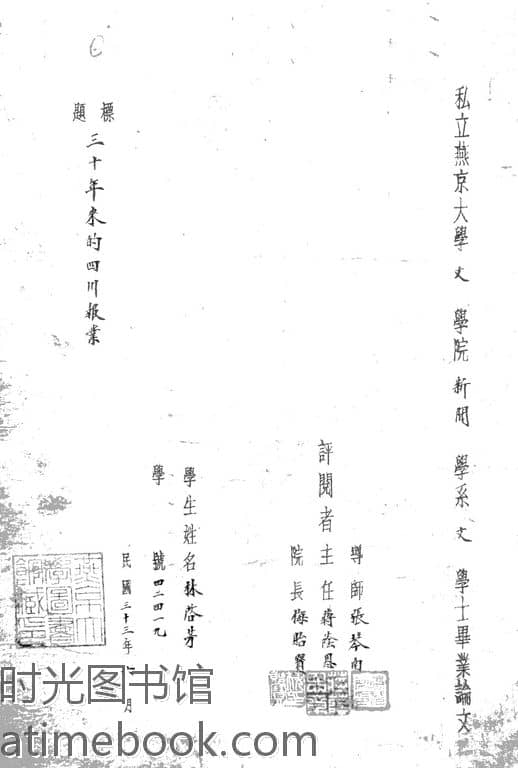 私立燕京大學文學院新聞學系文學士畢業論文
評閱者
導師張琴南
主任蔣蔭恩
院長梅貽寶
學生姓名林啓芳
學號四二四一九
民國三十三年 月
標題 三十年來的四川報業
燕京大學圖書館藏印
时光图书馆
atimebook.com